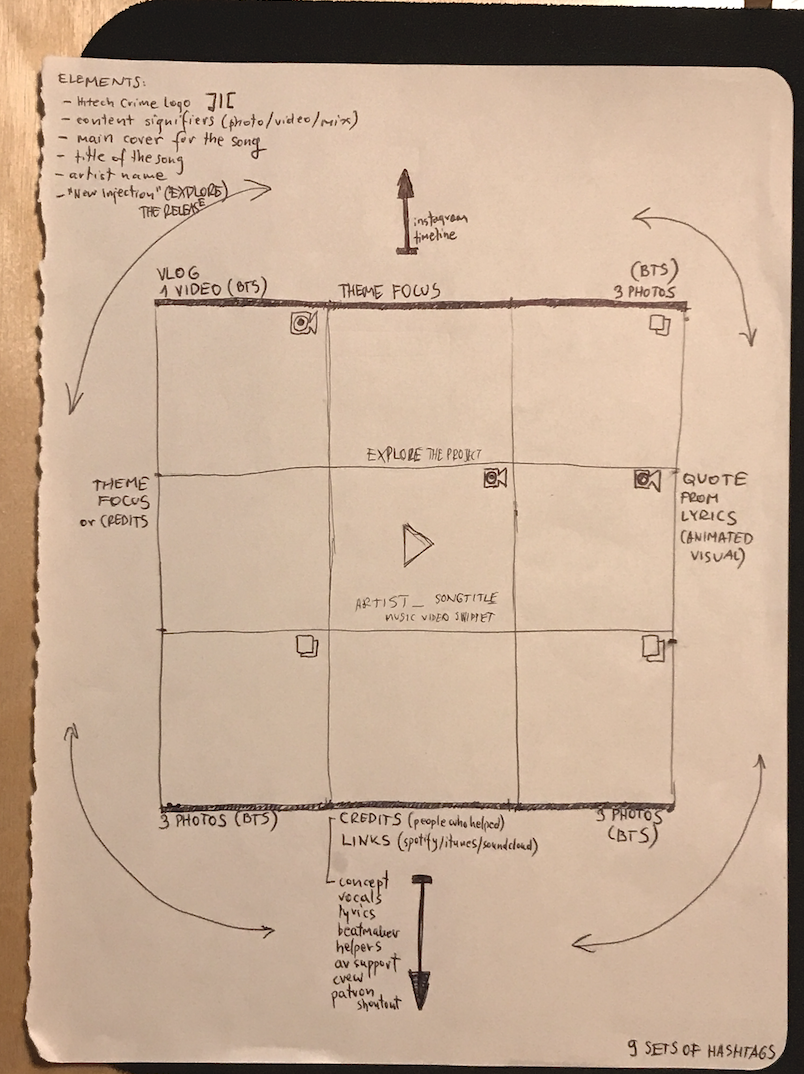 ELEMENTS:
- Hitech Crime Logo
- content signifiers (photo/video/mix)
- main cover for the song
- title of the song
- artist name
- "New Injection" (EXPLORE)
THE RELEASE
instagram
timeline
VLOG
1 VIDEO (BTS)
THEME FOCUS
(BTS)
3 PHOTOS
EXPLORE THE PROJECT
THEME
FOCUS
or CREDITS
QUOTE
FROM
LYRICS
(ANIMATED
VISUAL)
ARTIST_ SONGTITLE
MUSIC VIDEO SNIPPET
3 PHOTOS (BTS)
CREDITS (people who helped)
LINKS (spotify/itunes/soundcloud)
3 PHOTOS
(BTS)
concept
vocals
lyrics
beatmaker
helpers
av support
crew
patron
shoutout
9 SETS OF HASHTAGS